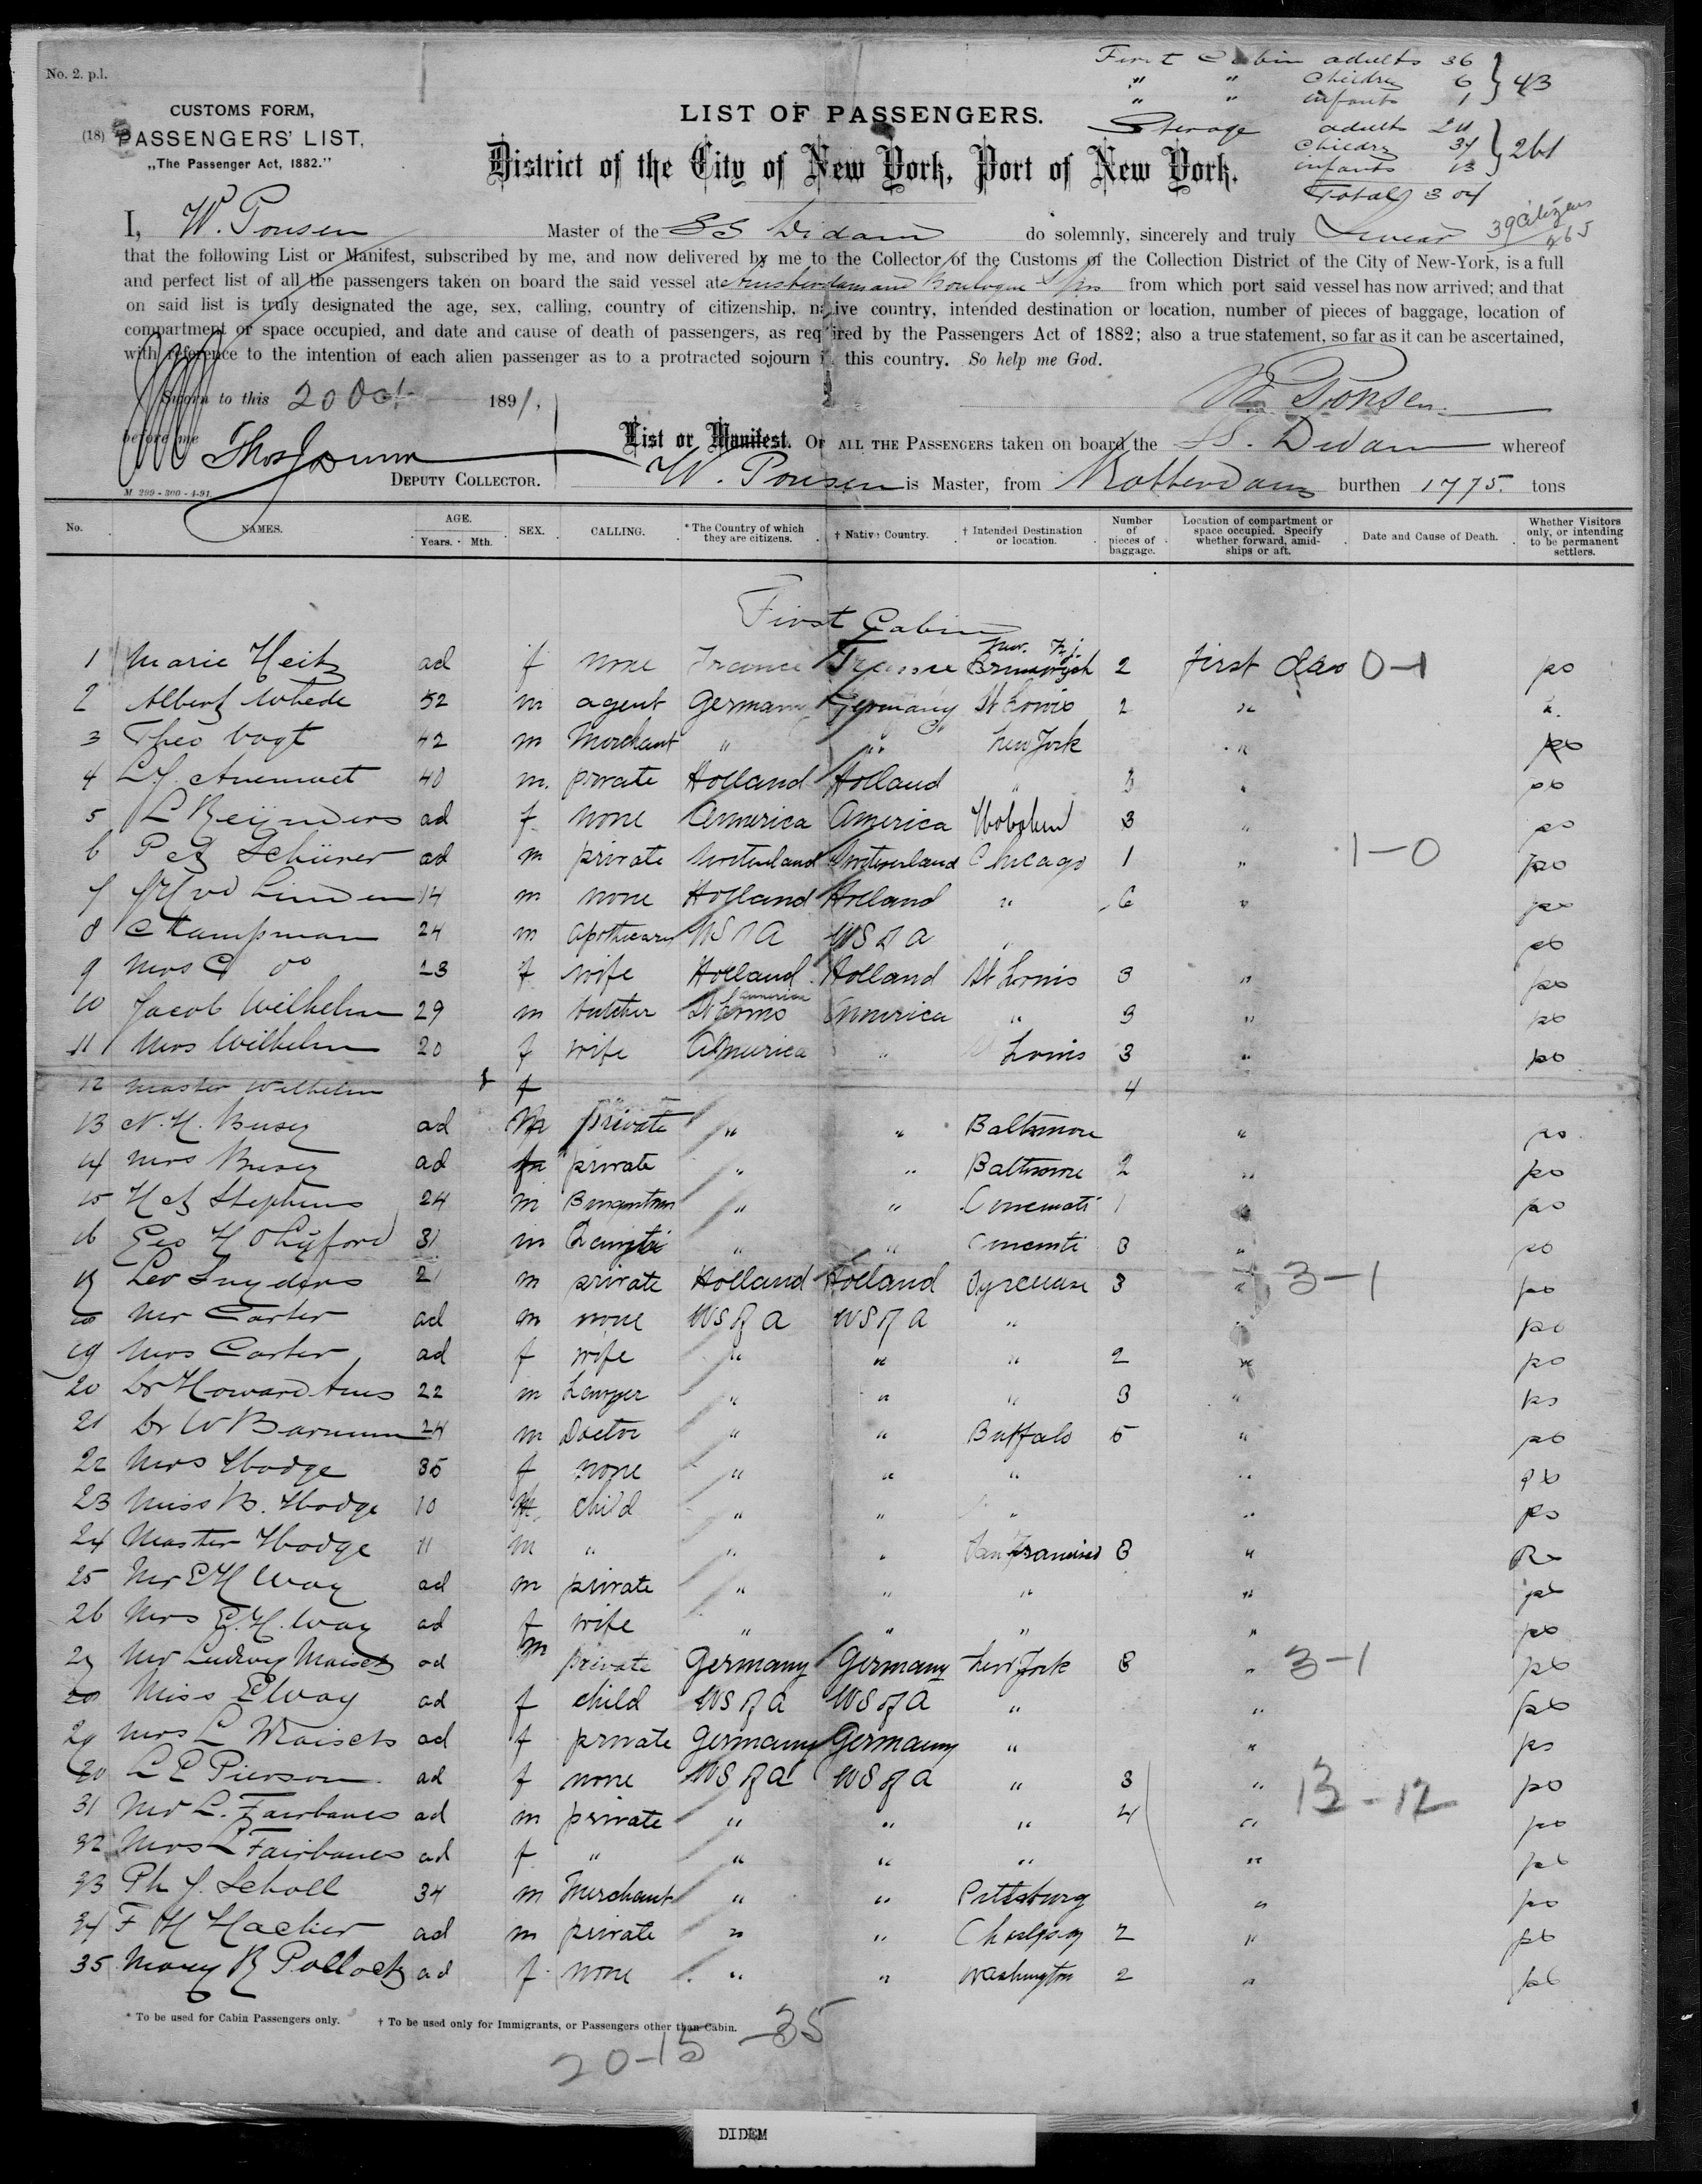 No. 2. p.l.
First Cabin adults 36
" " Childrn 6 } 43
" " infants 1
Sterage adults 211
Childrn 37 } 261
infants 13
Total 304
39 Citizens
265
CUSTOMS FORM,
(18) PASSENGERS' LIST,
„The Passenger Act, 1882."
LIST OF PASSENGERS.
District of the City of New York, Port of New York.
I, W. Ponsen Master of the SS Didam do solemnly, sincerely and truly Swear
that the following List or Manifest, subscribed by me, and now delivered by me to the Collector of the Customs of the Collection District of the City of New-York, is a full
and perfect list of all the passengers taken on board the said vessel at Amsterdam and Boulogne s/m from which port said vessel has now arrived; and that
on said list is truly designated the age, sex, calling, country of citizenship, native country, intended destination or location, number of pieces of baggage, location of
compartment or space occupied, and date and cause of death of passengers, as required by the Passengers Act of 1882; also a true statement, so far as it can be ascertained,
with reference to the intention of each alien passenger as to a protracted sojourn in this country. So help me God.
Sworn to this 20 Oct 1891,
W. Ponsen
before me
DEPUTY COLLECTOR.
M 299 - 300 - 4-91
List or Manifest. OF ALL THE PASSENGERS taken on board the SS. Didam whereof
W. Ponsen is Master, from Rotterdam burthen 1775. tons
No. NAMES. AGE. Years. Mth. SEX. CALLING. * The Country of which they are citizens. † Native Country. † Intended Destination or location. Number of pieces of baggage. Location of compartment or space occupied. Specify whether forward, amidships or aft. Date and Cause of Death. Whether Visitors only, or intending to be permanent settlers.
First Cabin
1 Marie Heitz ad f none France France New Brunswych 2 first class 0-1 po
2 Albert Whede 52 m agent Germany Germany St Louis 2 "
3 Theo Vogt 42 m Merchant " " New York " po
4 40 m. private Holland Holland " 3 " po
5 L Reijnders ad f none America America Hoboken 3 " po
6 Schürer ad m private Switserland Switserland Chicago 1 " 1-0 po
7 vd Linden 14 m none Holland Holland " 6 " po
8 C Kampman 24 m apothecary US of A US of A " po
9 Mrs C do 23 f wife Holland Holland St Louis 3 " po
10 Jacob Wilhelm 29 m butcher St Louis America America " 3 " po
11 Mrs Wilhelm 20 f wife America " Louis 3 " po
12 Master Wilhelm f 4
13 N. H. Busey ad m private " " Baltimore " po
14 Mrs Busey ad private " " Baltimore 2 " po
15 Stephens 24 m " " Cincinati 1 " po
16 Geo H 31 m " " Cincinati 3 " po
17 Leo Snyders 21 m private Holland Holland Syracuse 3 " 3-1 po
18 Mr Carter ad m none US of A US of A " " po
19 Mrs Carter ad f wife " " " 2 " po
20 Dr Howard Ams 22 m Lawyer " " " 3 " po
21 Dr W Barnum 24 m Doctor " " Buffalo 5 " po
22 Mrs Hodge 35 f none " " " " po
23 Miss B. Hodge 10 child " " " " po
24 Master Hodge 11 m " " " San Francisco 3 " po
25 Mr E H Way ad m private " " " " po
26 Mrs E. H. Way ad f wife " " " " po
27 Mr Ludwig Maisch ad m private Germany Germany New York 3 " 3-1 po
28 Miss E Way ad f child US of A US of A " " po
29 Mrs L Maisch ad f private Germany Germany " " po
30 L E Pierson ad f none US of A US of A " 3 " 13-12 po
31 Mr L. Fairbanks ad m private " " " 4 " po
32 Mrs L Fairbanks ad f " " " " " po
33 Ph J. Scholl 34 m Merchant " " Pittsburg " po
34 F H Hacker ad m private " " 2 " po
35 Mary R Pollock ad f none " " Washington 2 " po
* To be used for Cabin Passengers only. † To be used only for Immigrants, or Passengers other than Cabin.
20-15-35
DIDEM